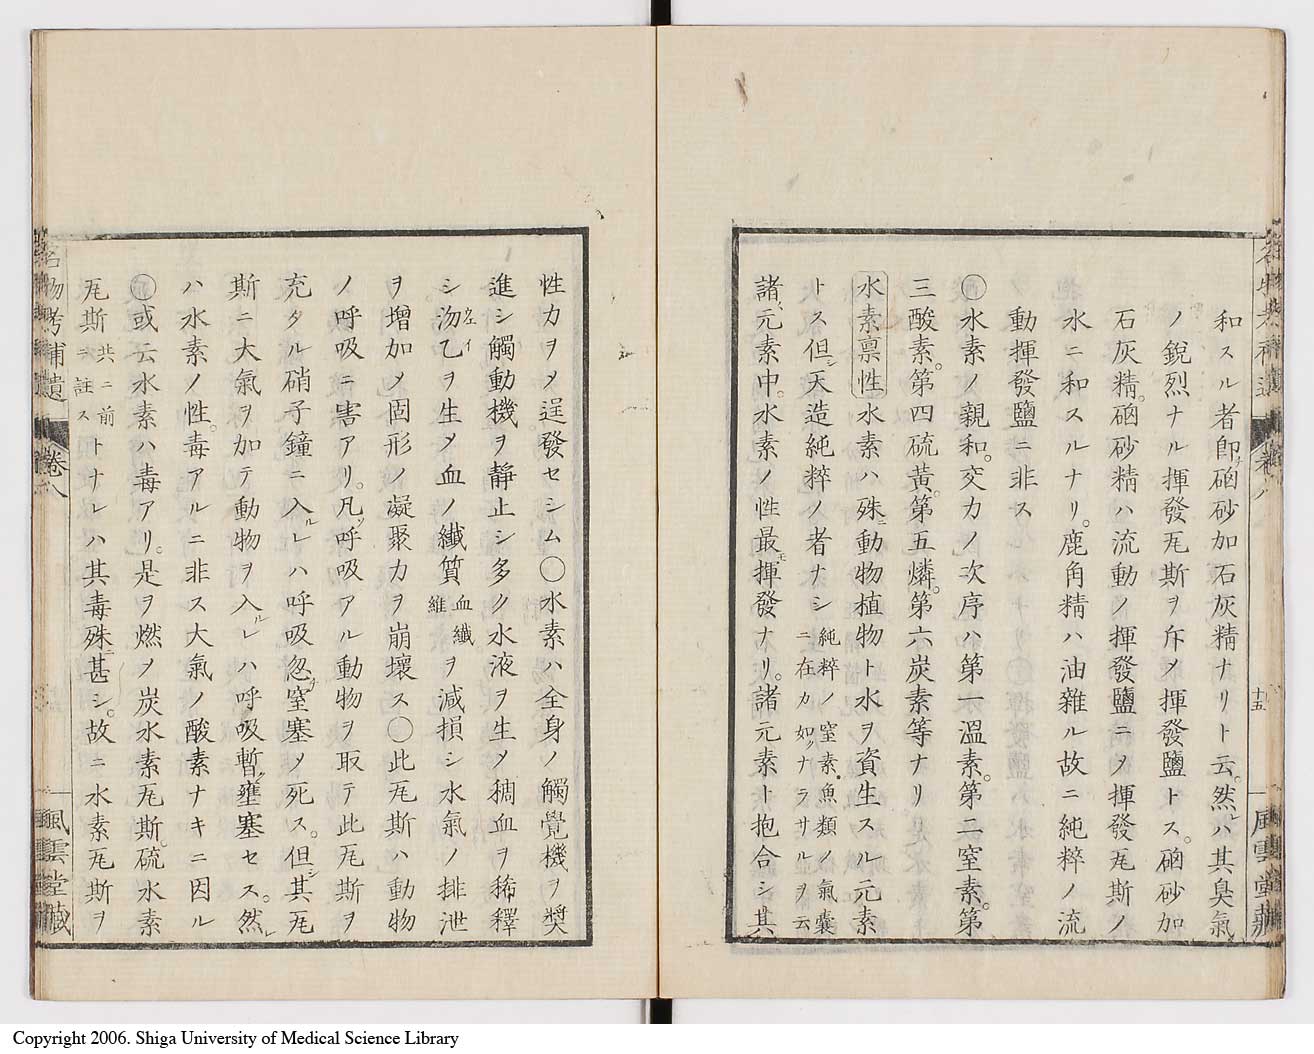 和スル者卽磠砂加石灰精ナリト云。然レハ其臭氣
ノ銳烈ナル揮發瓦斯ヲ斥メ揮發鹽トス。磠砂加
石灰精。磠砂精ハ流動ノ揮發鹽ニヲ揮發瓦斯ノ
水ニ和スルナリ。鹿角精ハ油雜ル故ニ純粹ノ流
動揮發鹽ニ非ス
〇水素ノ親和。交力ノ次序ハ第一溫素。第二窒素。第
三酸素。第四硫黃。第五燐。第六炭素等ナリ
水素禀性 水素ハ殊ニ動物植物ト水ヲ資生スル元素
トス但シ天造純粹ノ者ナシ 純粹ノ窒素。魚類ノ氣囊ニ在カ如クナラサルヲ云
諸元素中。水素ノ性最モ揮發ナリ。諸元素ト抱合シ其
性力ヲメ逞發セシム〇水素ハ全身ノ觸覺機ヲ奬
進シ觸動機ヲ靜止シ多ク水液ヲ生メ稠血ヲ稀釋
シ沕乙ヲ生メ血ノ纖質 血纖維 ヲ減損シ水氣ノ排泄
ヲ增加メ固形ノ凝聚力ヲ崩壞ス〇此瓦斯ハ動物
ノ呼吸ニ害アリ。凡ソ呼吸アル動物ヲ取テ此瓦斯ヲ
充タル硝子鐘ニ入ルレハ呼吸忽窒塞メ死ス。但シ其瓦
斯ニ大氣ヲ加テ動物ヲ入ルレハ呼吸暫ク壅塞セス。然レ
ハ水素ノ性。毒アルニ非ス大氣ノ酸素ナキニ因ル
〇或云水素ハ毒アリ。是ヲ燃メ炭水素瓦斯。硫水素
瓦斯 共ニ前ニ註ス トナレハ其毒殊ニ甚シ。故ニ水素瓦斯ヲ
名物考補遺 卷八
風雲堂藏
十五
Copyright 2006. Shiga University of Medical Science Library